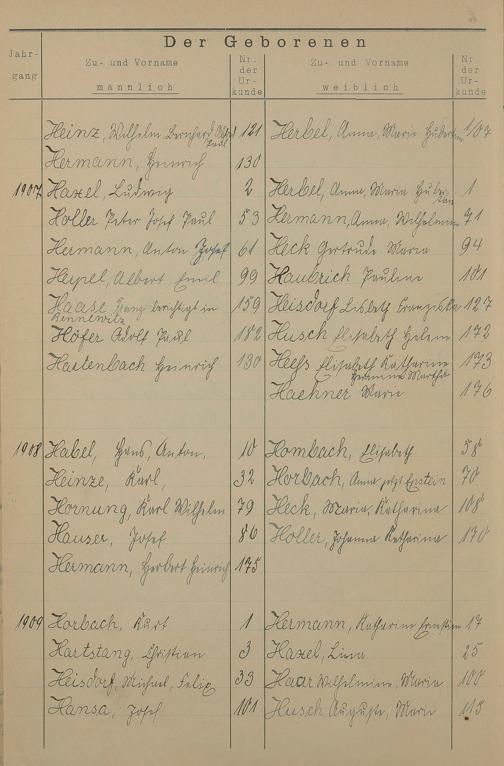 Der Geborenen
Jahr-gang Zu- und Vorname männlich Nr. der Ur-kunde Zu- und Vorname weiblich Nr. der Ur-kunde
Heinz, Wilhelm Bernhard Paul 121 Herbel, Anna, Maria 107
Hermann, Heinrich 130
1907 Haxel, Ludwig 2 Herbel, Anna, Maria 1
Holler Peter Josef Paul 53 Hermann, Anna, Wilhelmine 71
Hermann, Anton Josef 61 Heck Gertrude Maria 94
Heipel, Albert Emil 99 Haubrich Pauline 101
Haase berichtigt in 159 Heisdorf Lisbeth Franziska 127
Rennewitz
Höfer Adolf Paul 182 Husch Elisabeth Helene 172
Hartenbach Heinrich 130 Heehs Elisabeth Katharine 173
Hermine Martha
Haehner Marie 176
1908 Habel, Hans, Anton, 10 Hombach, Elisabeth 58
Heinze, Karl, 32 Horbach, Anna jetzt Epstein 70
Hornung, Karl Wilhelm 79 Heck, Maria, Katharina 108
Hauser, Josef 86 Holler, Johanna Katharina 170
Hermann, Herbert Heinrich 175
1909 Horbach, Kurt 1 Hermann, Katharine Ernstine 17
Hartstang, Christian 3 Haxel, Lina 25
Heisdorf, Michael, Felix 33 Haar Wilhelmine, Maria 100
Hansa, Josef 101 Husch Auguste, Marie 113